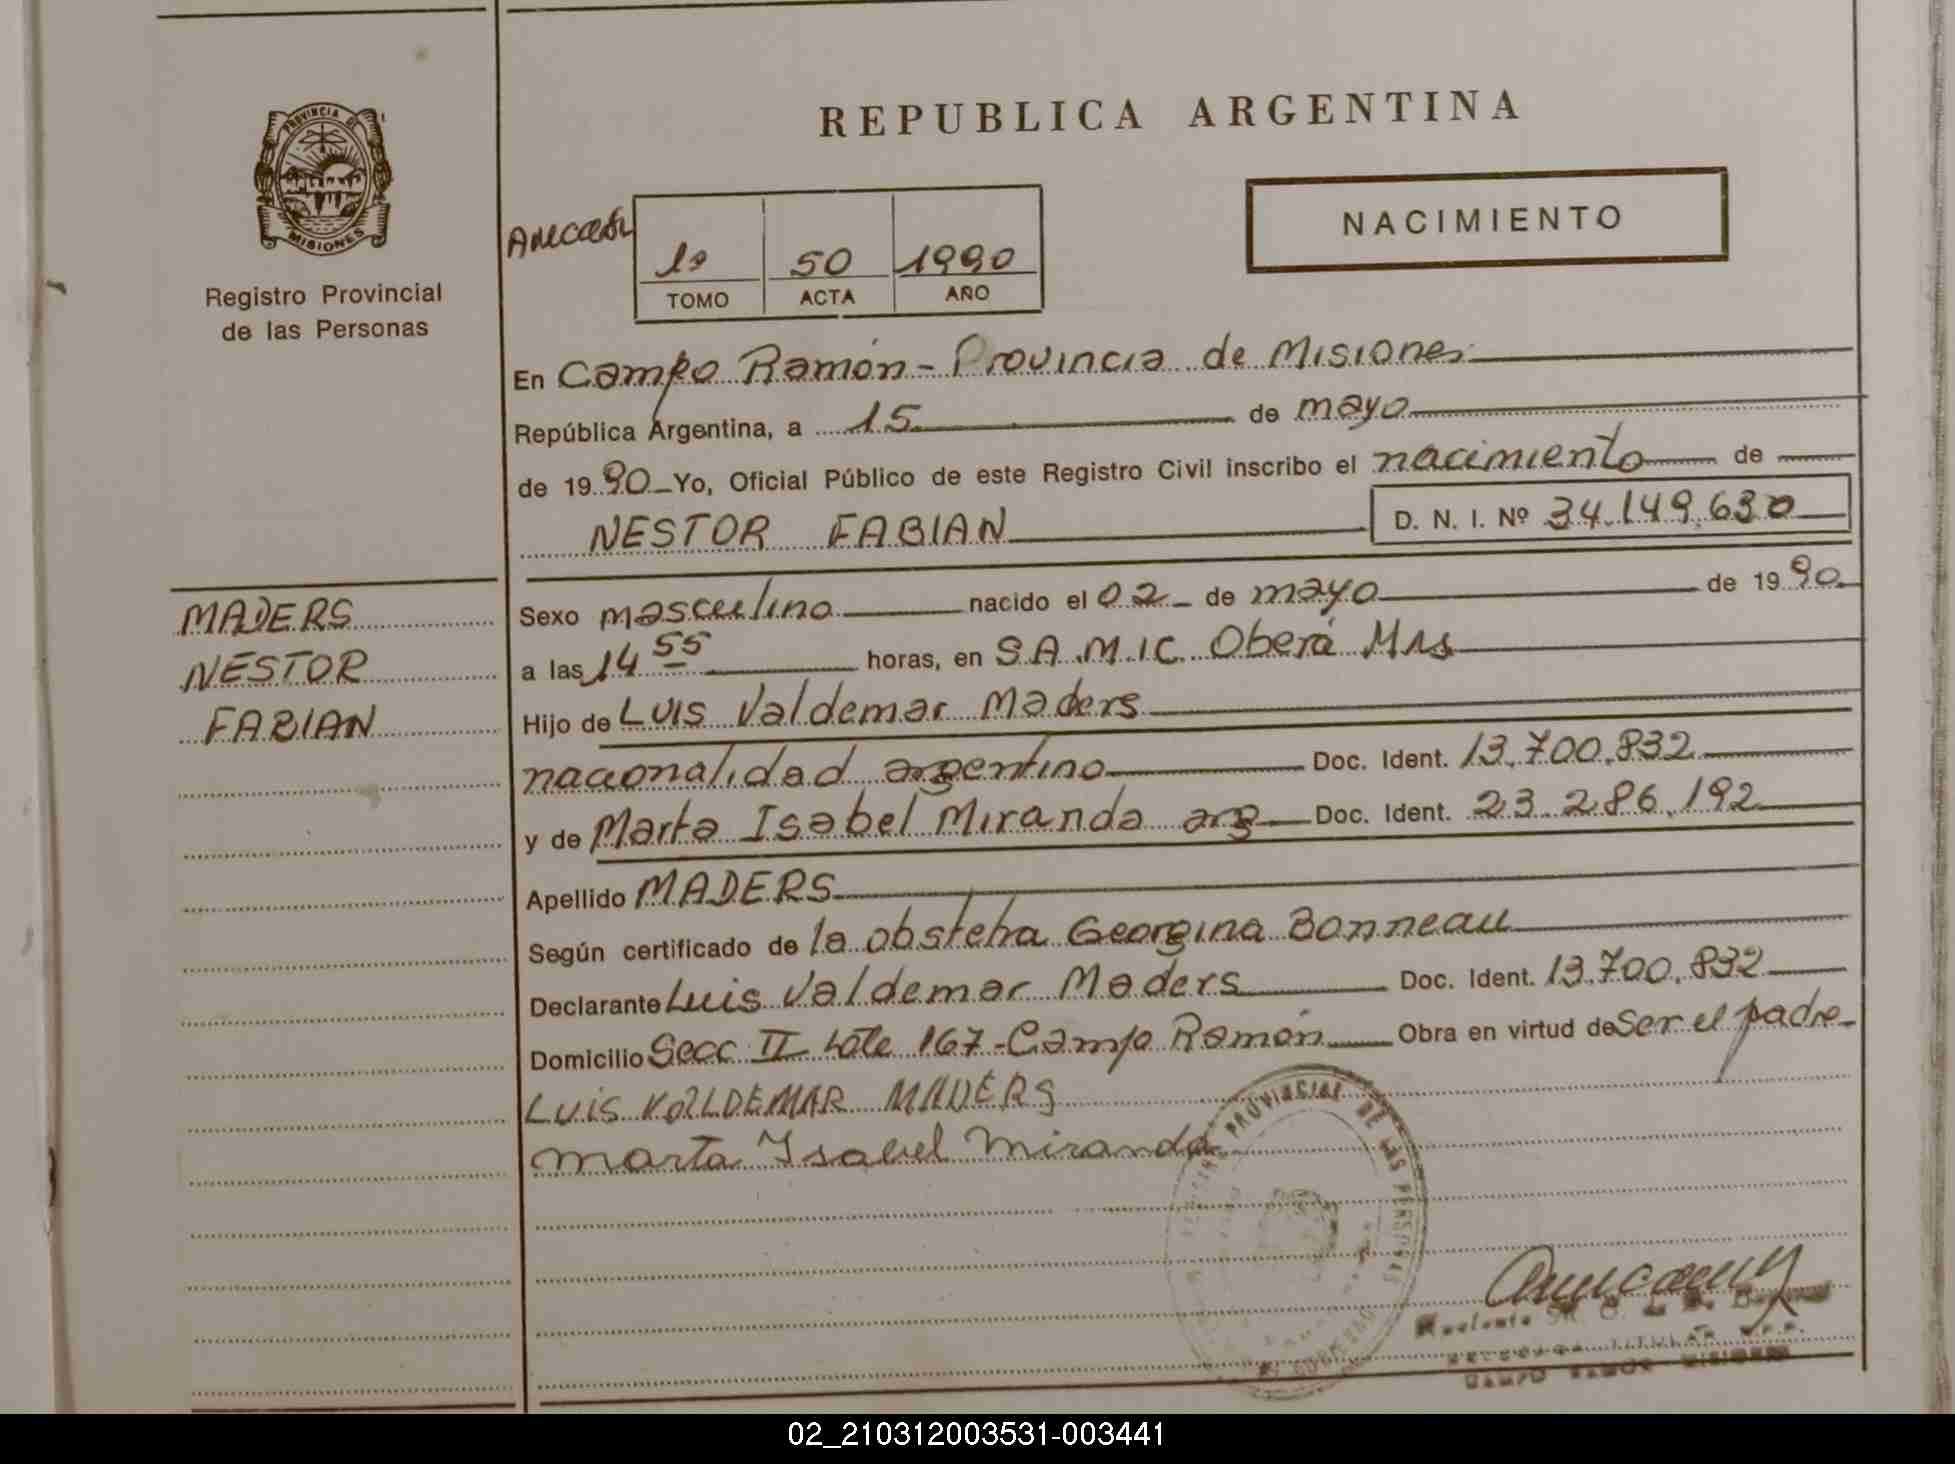 REPUBLICA ARGENTINA
PROVINCIA DE
MISIONES
Registro Provincial
de las Personas
NACIMIENTO
1º 50 1990
TOMO ACTA AÑO
En Campo Ramón - Provincia de Misiones
República Argentina, a 15 de mayo
de 1990 Yo, Oficial Público de este Registro Civil inscribo el nacimiento de
NESTOR FABIAN D. N. I. Nº 34.149.630
MADERS
NESTOR
FABIAN
Sexo masculino nacido el 02 de mayo de 1990
a las 14 55 horas, en S.A.M.I.C. Oberá Mns
Hijo de Luis Valdemar Maders
nacionalidad argentino Doc. Ident. 13.700.832
y de Marta Isabel Miranda arg Doc. Ident. 23.286.192
Apellido MADERS
Según certificado de la obstetra Georgina Bonneau
Declarante Luis Valdemar Maders Doc. Ident. 13.700.832
Domicilio Secc II Lote 167 - Campo Ramón Obra en virtud de Ser el padre
LUIS VALDEMAR MADERS
Marta Isabel Miranda
PROVINCIAL DE LAS PERSONAS
TITULAR
CAMPO RAMON MISIONES
02_210312003531-003441